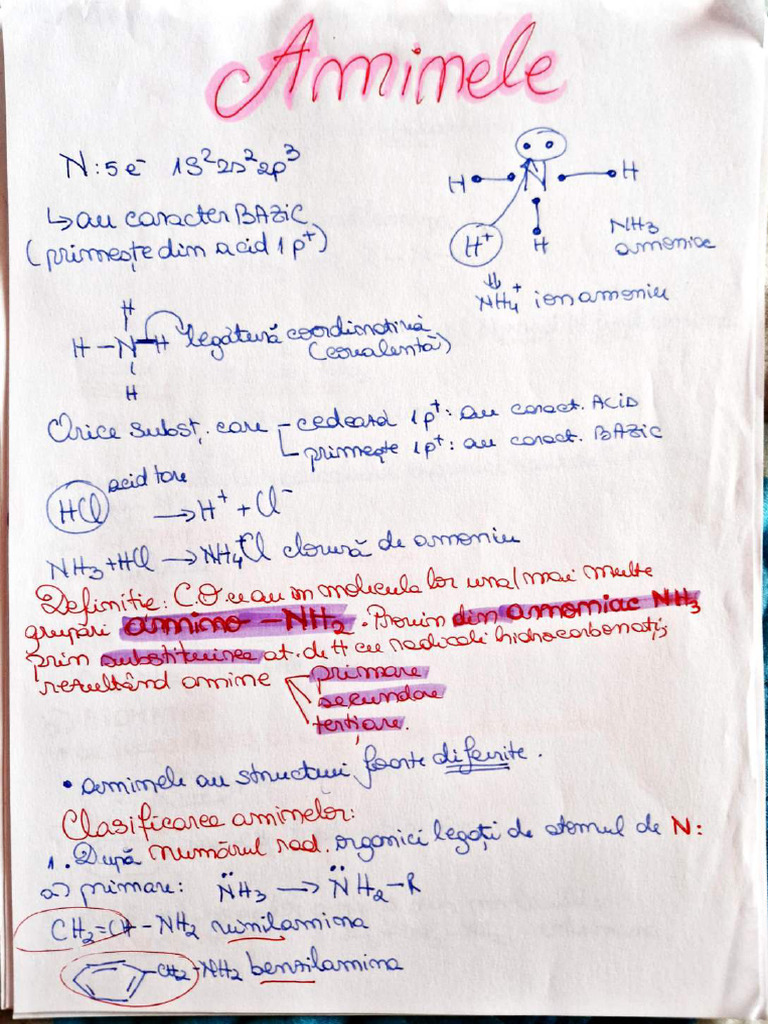 Aminele
N: 5e⁻ 1s²2s²2p³
↳ au caracter BAZIC
(primește din acid 1p⁺)
H N H
H⁺ H
NH₃
amoniac
⇓
NH₄⁺ ion amoniu
H
H – N – H legătură coordinativă
(covalentă)
H
Orice subst. care – cedează 1p⁺: au caract. ACID
– primește 1p⁺: au caract. BAZIC
acid tare
HCl → H⁺ + Cl⁻
NH₃ + HCl → NH₄⁺Cl clorură de amoniu
Definiție: C.O ce au în molecula lor una/mai multe
grupări amino –NH₂. Provin din amoniac NH₃
prin substituirea at. de H cu radicali hidrocarbonați,
rezultând amine primare
secundare
terțiare.
• aminele au structuri foarte diferite.
Clasificarea aminelor:
1. După numărul rad. organici legați de atomul de N:
a) primare: N̈H₃ → N̈H₂–R
CH₂=CH–NH₂ vinilamina
–CH₂–NH₂ benzilamina